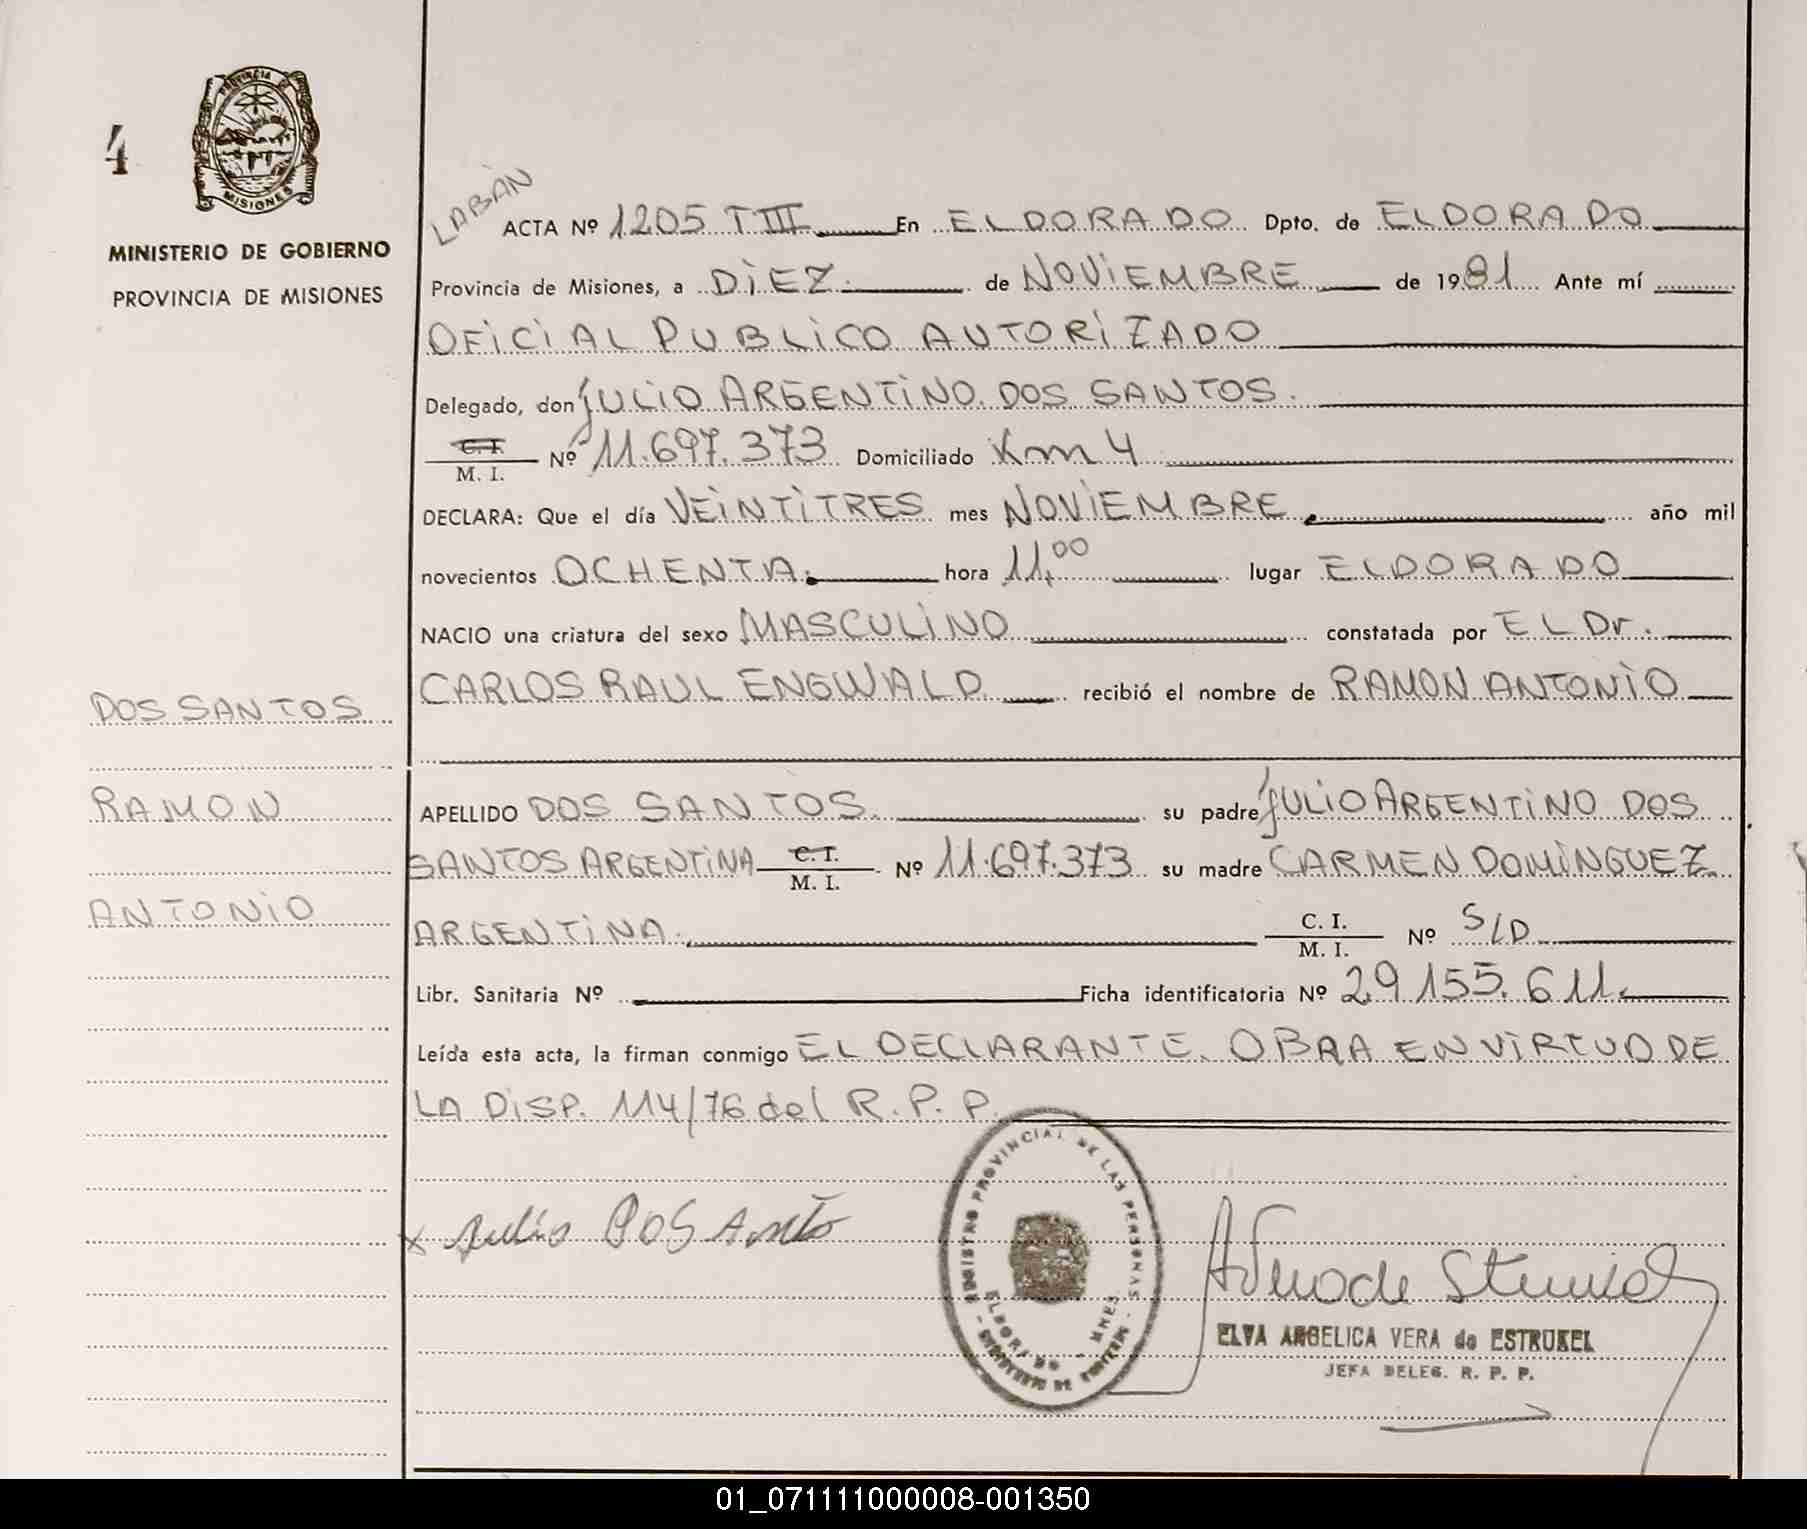 PROVINCIA DE
MISIONES
4
MINISTERIO DE GOBIERNO
PROVINCIA DE MISIONES
LABÀN
ACTA Nº 1205 T III En ELDORADO Dpto. de ELDORADO
Provincia de Misiones, a DIEZ de NOVIEMBRE de 1981 Ante mí
OFICIAL PUBLICO AUTORIZADO
Delegado, don JULIO ARGENTINO DOS SANTOS.
C. I.
M. I. Nº 11.697.373 Domiciliado Km 4
DECLARA: Que el día VEINTITRES mes NOVIEMBRE año mil
novecientos OCHENTA. hora 11,00 lugar ELDORADO
NACIO una criatura del sexo MASCULINO constatada por EL Dr.
CARLOS RAUL ENGWALD recibió el nombre de RAMON ANTONIO
DOS SANTOS
RAMON
ANTONIO
APELLIDO DOS SANTOS. su padre JULIO ARGENTINO DOS
SANTOS ARGENTINA C. I.
M. I. Nº 11.697.373 su madre CARMEN DOMINGUEZ
ARGENTINA. C. I.
M. I. Nº S/D
Libr. Sanitaria Nº Ficha identificatoria Nº 29.155.611.
Leída esta acta, la firman conmigo EL DECLARANTE. OBRA EN VIRTUD DE
LA DISP. 114/76 del R. P. P.
x Julio DOS Santo
REGISTRO PROVINCIAL DE LAS PERSONAS
ELDORADO - MNES.
MINISTERIO DE GOBIERNO
ELVA ANGELICA VERA de ESTRUKEL
JEFA DELEG. R. P. P.
01_071111000008-001350